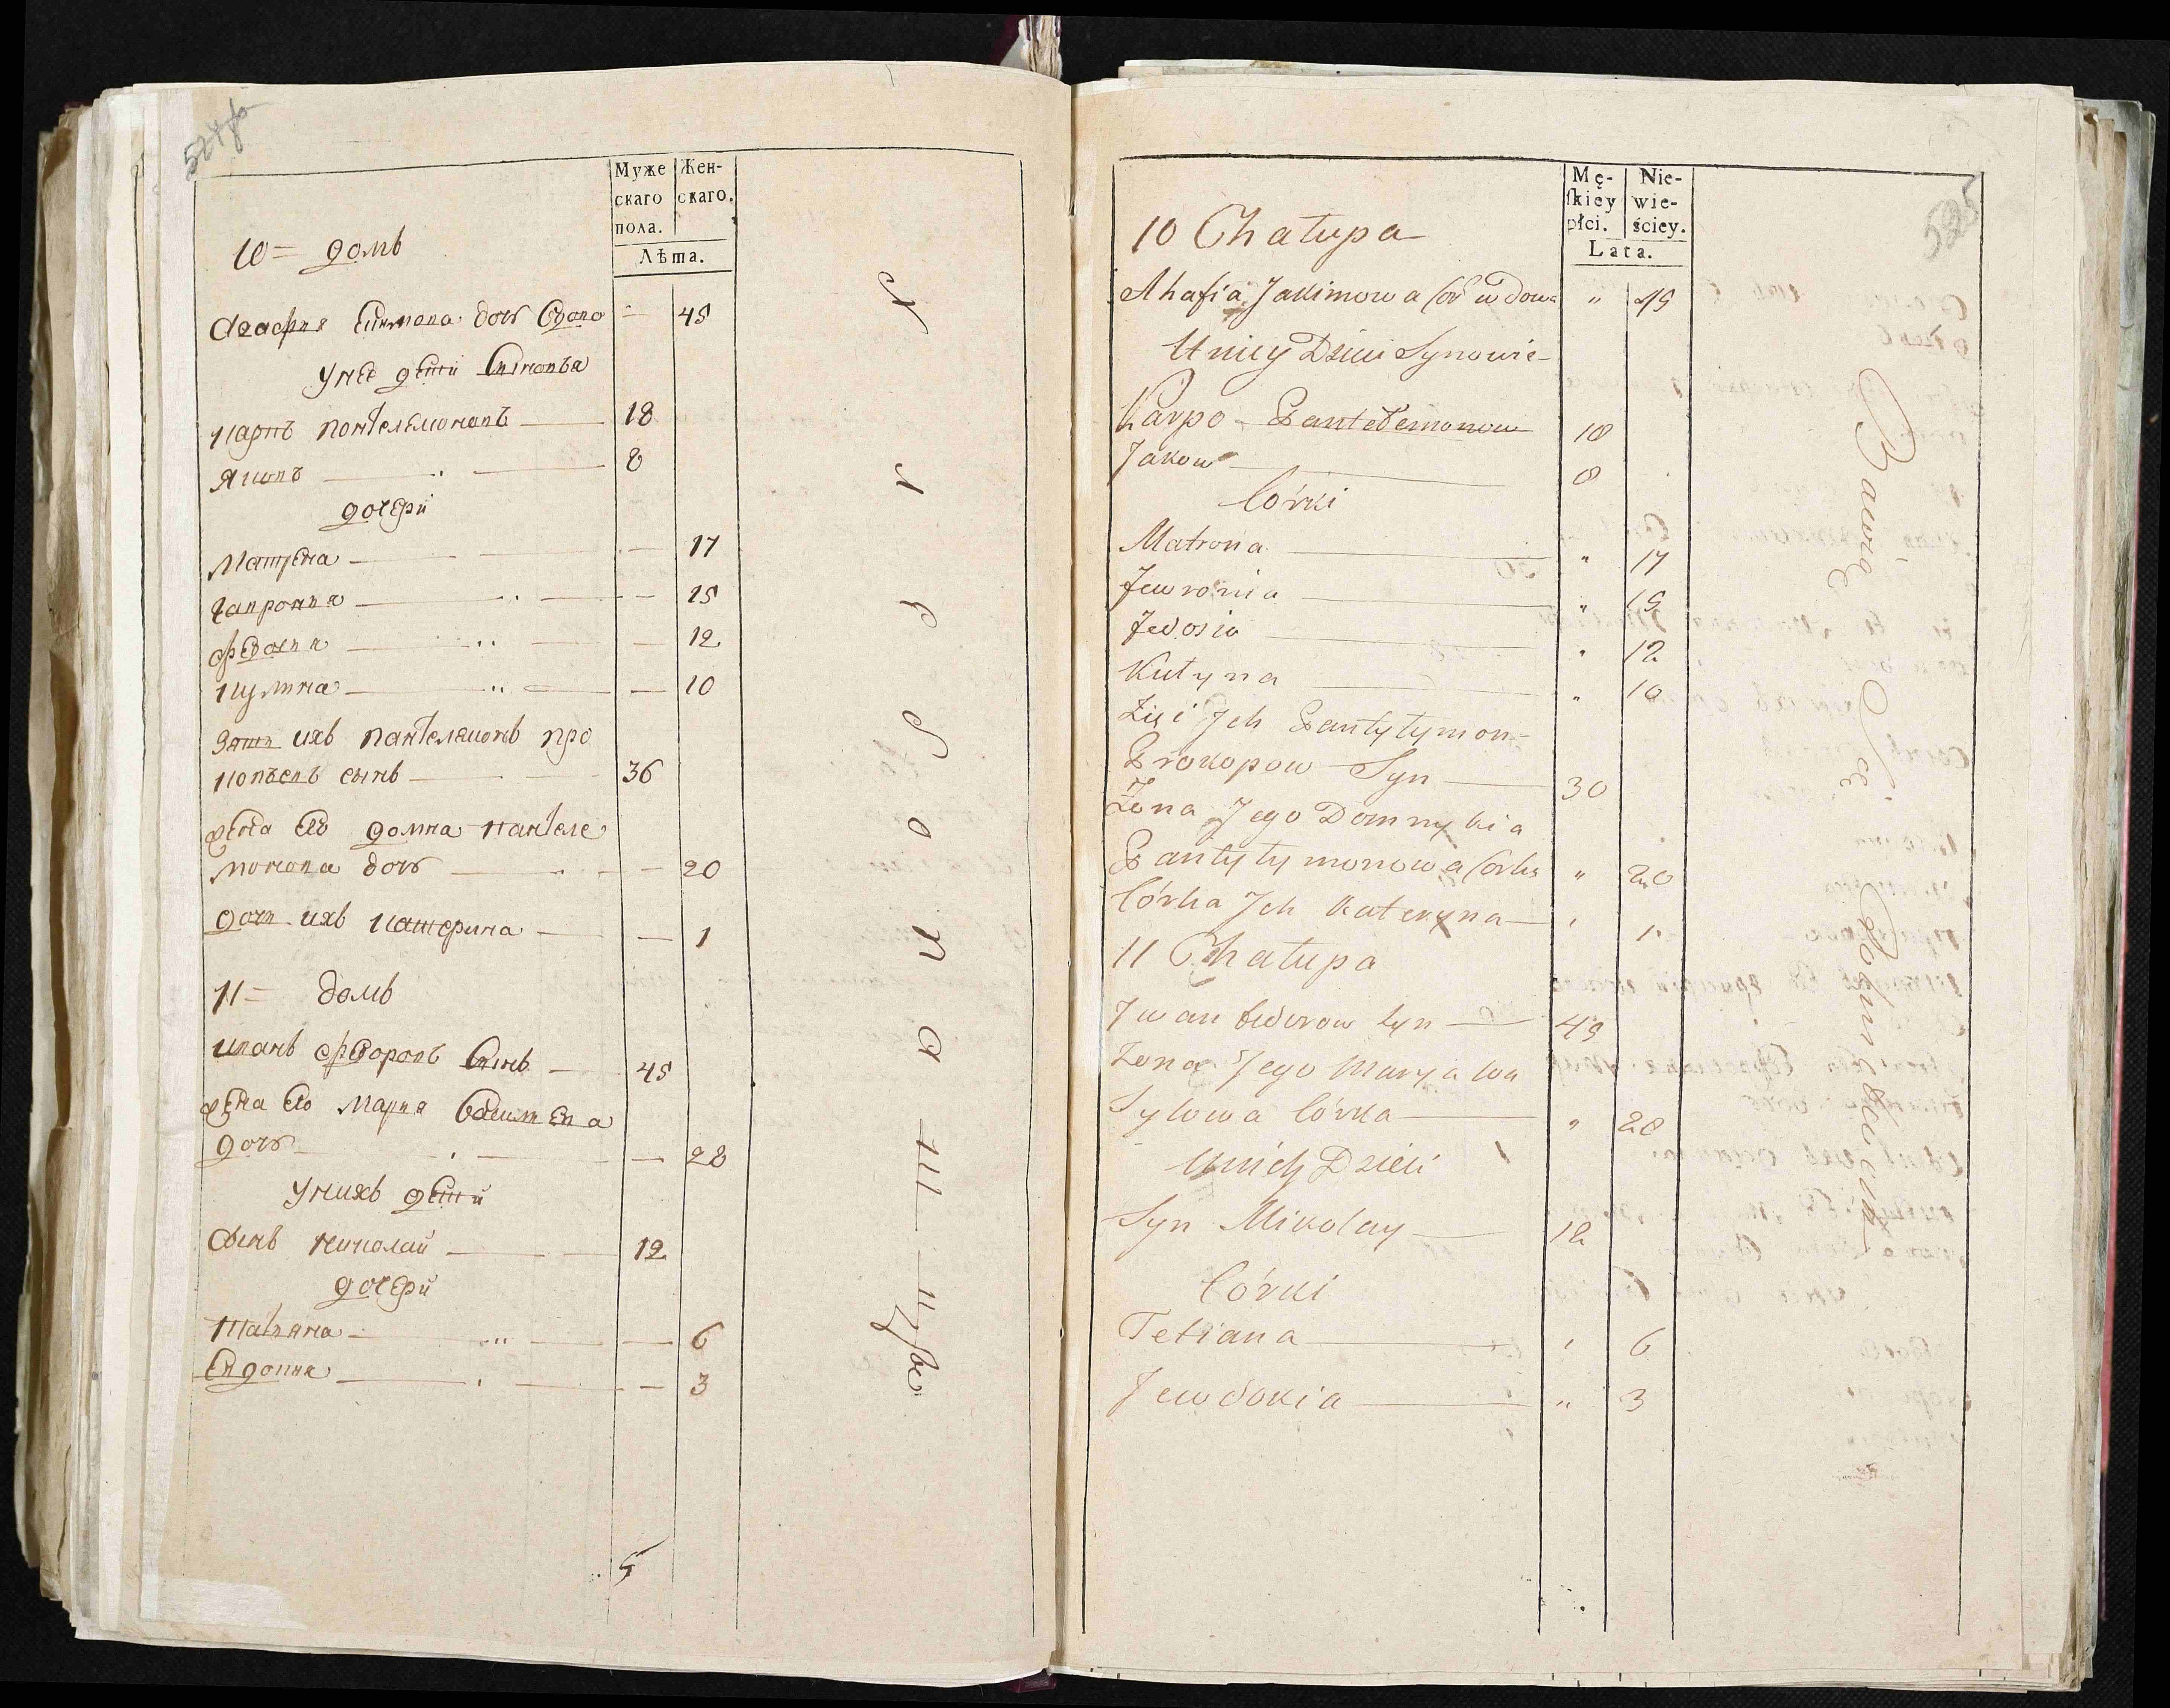 Муже
скаго
пола.
Жен-
скаго.
Лѣта.
10 = домъ
Агафия Екимова дочъ вдова - 45
унее дети Синовъя
Карпъ Пантелемоновъ 18
Яковъ 8
дочери
Матрена 17
Гапрония 15
Федосия 12
Кулина 10
Зять ихъ Пантелемонъ Про
копъевъ сынъ 36
жена его домна Пантеле
монова дочъ 20
дочъ ихъ Катерина 1
11 = домъ
Иванъ Федоровъ Синъ 45
жена его Мария
дочъ 28
унихъ дети
Синъ Николай 12
дочери
Татяна 6
Евдокия 3
5
525
Mę-
skiey
płci.
Nie-
wie-
ściey.
Lata.
10 Chałupa
Ahafia Jakimowa Cor wdowa " 45
Uniey Dzieci Synowie
Karpo Pantelemonow 18
Jakow 8
Córki
Matrona " 17
Jewronia " 15
Fedosia " 12
Kulyna " 10
Zięć Jch Pantylymon
Prokopow Syn 30
Żona Jego Domnykia
Pantylymonowa Corka " 20
Córka Jch Kateryna 1
11 Chałupa
Jwan Fedorow Syn 45
Żona Jego Marya Wa
Sylowa Córka " 28
Unich Dzieci
Syn Mikołay 12
Córki
Tetiana 6
Jewdokia " 3